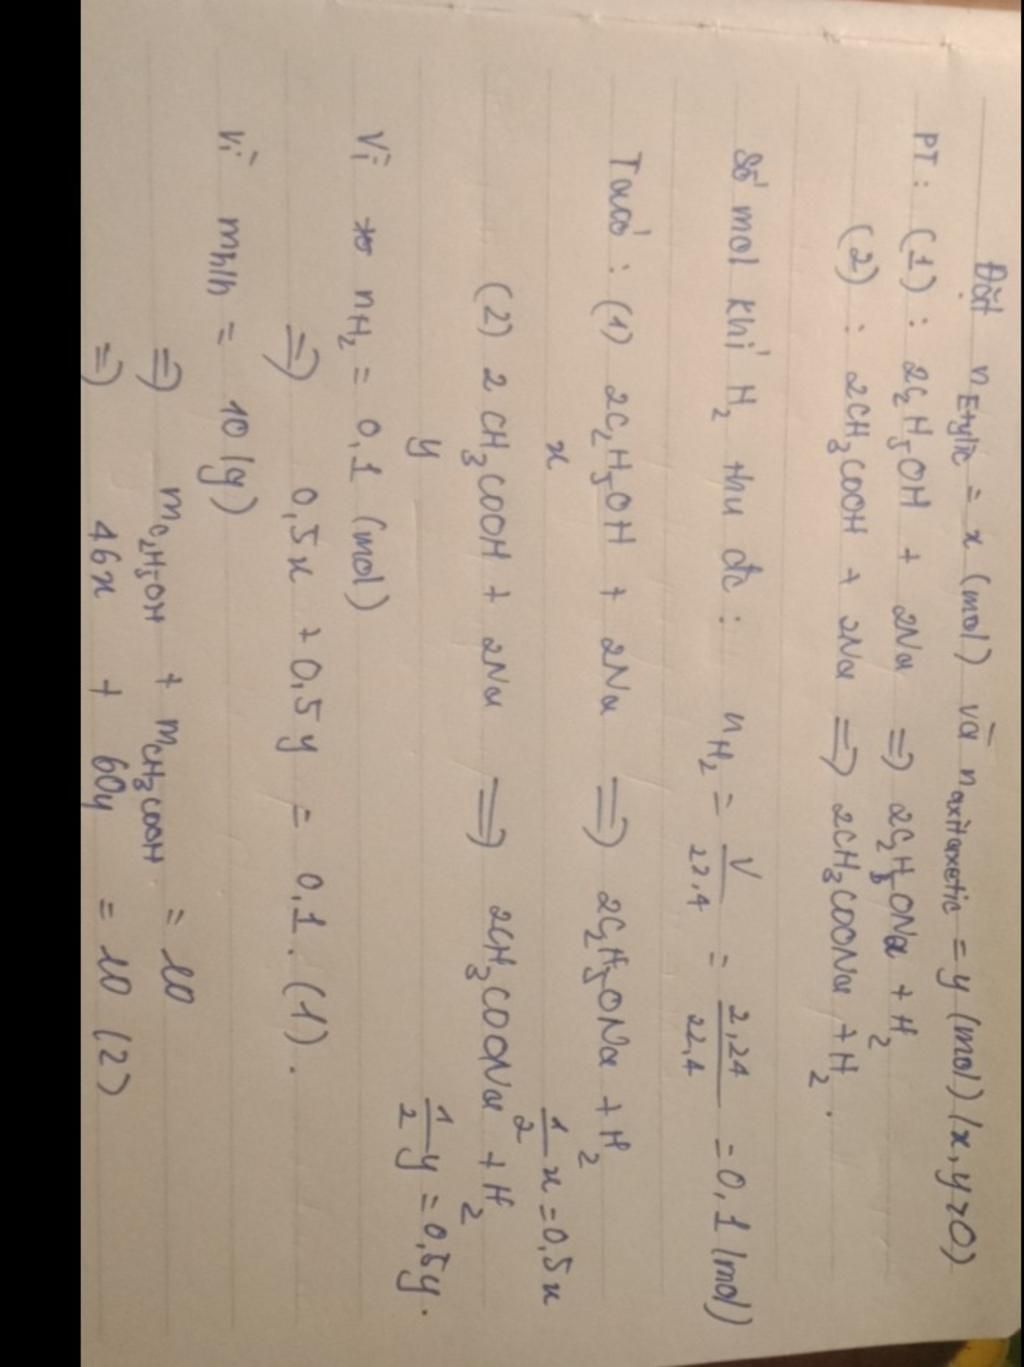 Đặt nEtylic = x (mol) và naxitaxetic = y (mol) (x, y > 0)
PT : (1) : 2C2H5OH + 2Na => 2C2H5ONa + H2
(2) : 2CH3COOH + 2Na => 2CH3COONa + H2.
Số mol khí H2 thu đc : nH2 = V/22,4 = 2,24/22,4 = 0,1 (mol)
Ta có : (1) 2C2H5OH + 2Na => 2C2H5ONa + H2
x 1/2 x = 0,5x
(2) 2CH3COOH + 2Na => 2CH3COONa + H2
y 1/2 y = 0,5y.
Vì nH2 = 0,1 (mol)
=> 0,5x + 0,5y = 0,1. (1).
Vì mhh = 10 (g)
=> mC2H5OH + mCH3COOH = 10
=> 46x + 60y = 10 (2)